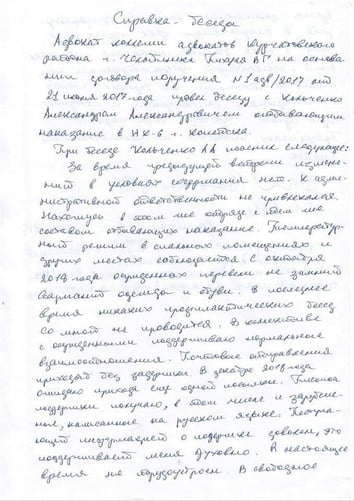 Справка - беседа
Адвокат коллегии адвокатов Курчатовского
района г. Челябинска ВГ на основа-
нии договора поручения N 1 адв/2017 от
21 июня 2017 года провел беседу с Кольченко
Александром Александровичем отбывающим
наказание в ИК-6 г. Копейска.
При беседе Кольченко АА пояснил следующее:
За время предыдущей встречи измене-
ний в условиях содержания нет. К адми-
нистративной ответственности не привлекался.
Нахожусь в этом же отряде с тем же
составом отбывающих наказание. Температур-
ный режим в спальных помещениях и
других местах соблюдается. С октября
2018 года осужденных перевели на зимний
вариант одежды и обуви. В последнее
время никаких профилактических бесед
со мной не проводится. В коллективе
с осужденными поддерживаю нормальные
взаимоотношения. Почтовые отправления
приходят без задержки. В декабре 2018 года
ожидаю прихода еще одной посылки. Письма
поддержки получаю, в том числе и зарубеж-
ные, написанные на русском языке. Поступа-
ющей информацией о поддержке доволен, это
поддерживает меня духовно. В настоящее
время не трудоустроен. В свободное